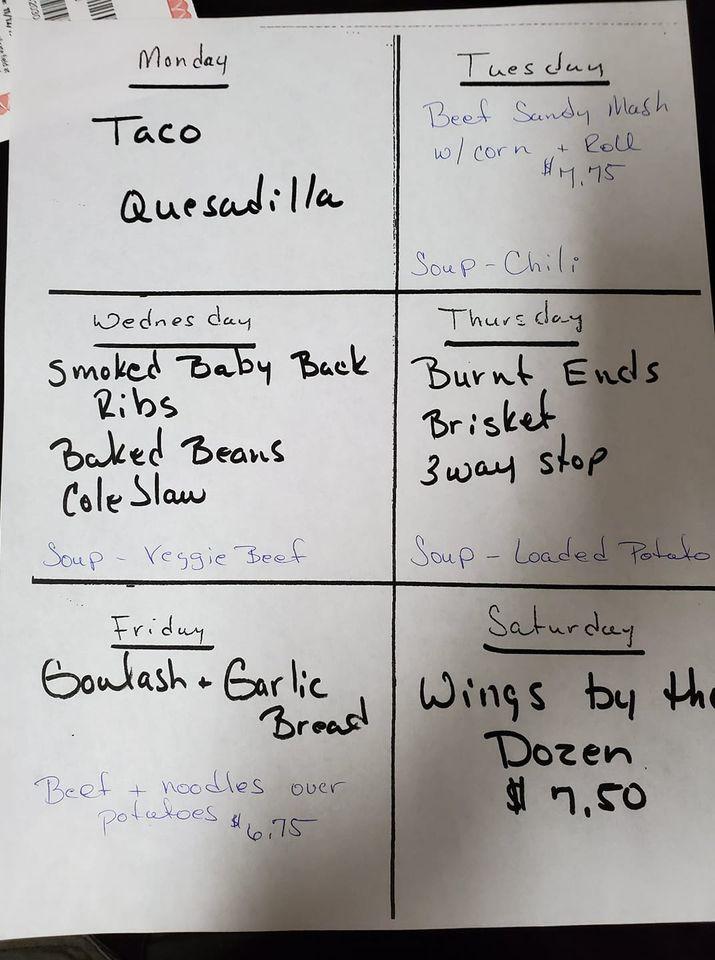 Monday
Taco
Quesadilla
Tuesday
Beef Sandy Mash
w/ corn + Roll
$7.75
Soup - Chili
Wednesday
Smoked Baby Back
Ribs
Baked Beans
Cole Slaw
Soup - Veggie Beef
Thursday
Burnt Ends
Brisket
3 way stop
Soup - Loaded Potato
Friday
Goulash + Garlic
Bread
Beef + noodles over
potatoes $6.75
Saturday
Wings by the
Dozen
$7.50